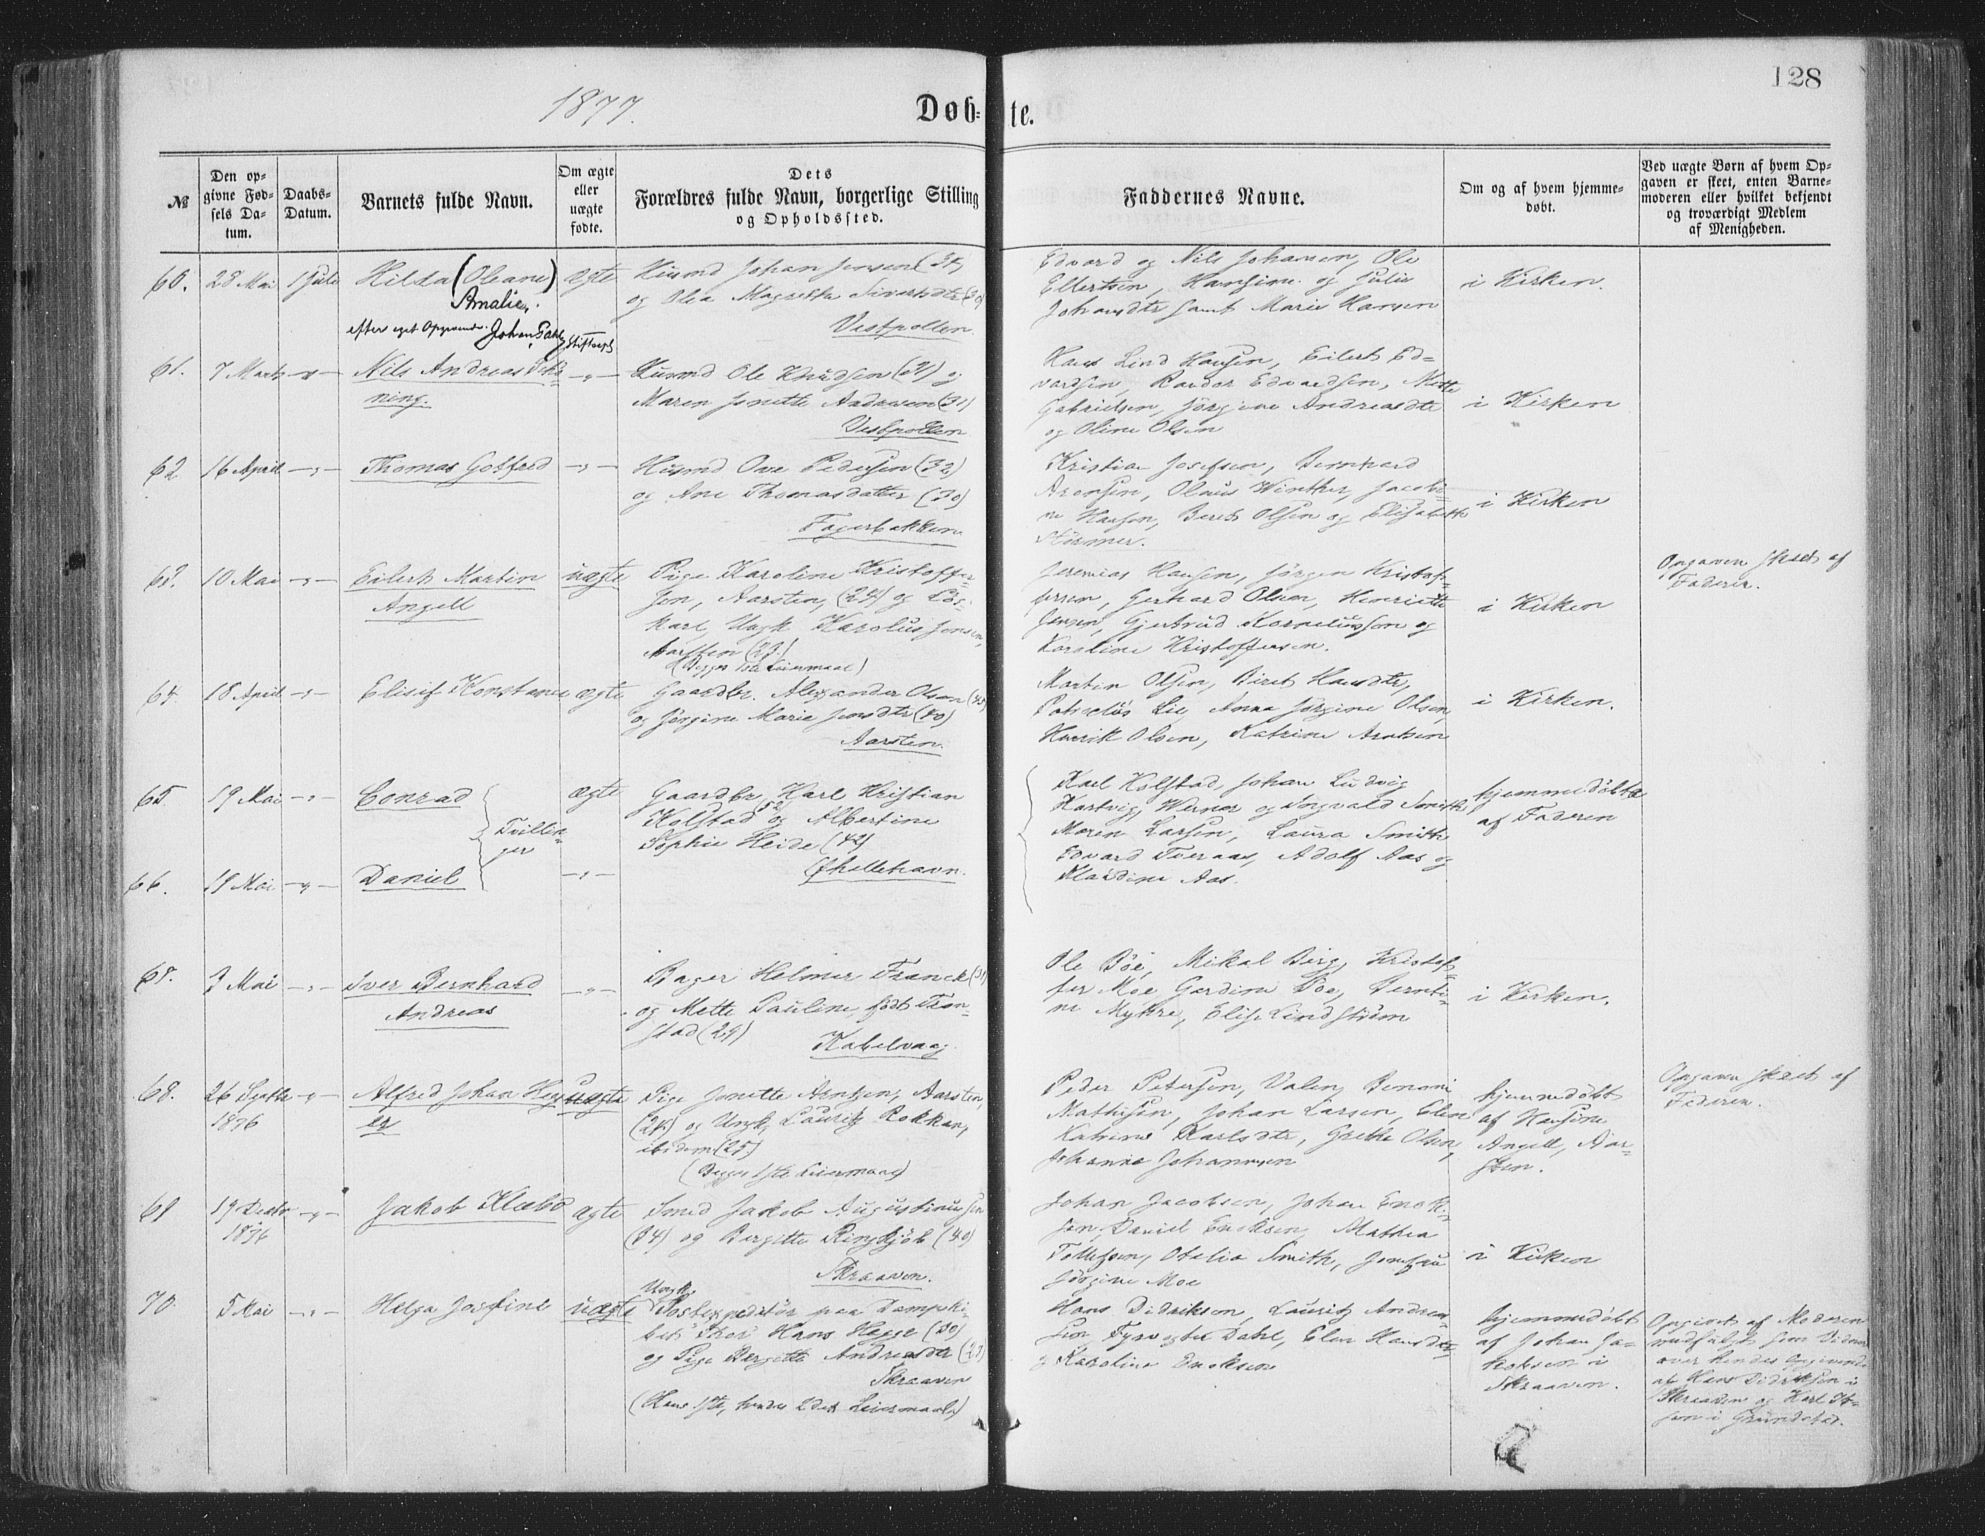 128
1877.
Døb-te.
№
Den opgivne Fødsels Datum.
Daabs-Datum.
Barnets fulde Navn.
Om ægte eller uægte fødte.
Dets Forældres fulde Navn, borgerlige Stilling og Opholdssted.
Faddernes Navne.
Om og af hvem hjemmedøbt.
Ved uægte Børn af hvem Opgaven er skeet, enten Barnemoderen eller hvilket bekjendt og troværdigt Medlem af Menigheden.
60. 28 Mai 1 Juli Hilda (Oleane) ægte
Amalie,
efter eget Opgivende
Husmd Johan Jensen
og Olea Magretha
Vestpollen
Edvard og Nils Johansen, Ole
Ellertsen, Hansine og Julie
Johansdtr samt Marie Hansen
i Kirken.
61. 7 Marts -"- Nils Andreas -"-
ning.
Husmd Ole Knudsen og
Maren Jonette Andresen (31)
Vestpollen
Hans Lind Hansen, Eilert Ed-
vardsen, Edvardsen, Mette
Gabrielsen, Jørgine Andreasdtr
og Oline Olsen
i Kirken
62 16 April -"- Thomas Gotfred -"-
Husmd Ove Pedersen (32)
og Ane Thomasdatter (30)
Fagerbakken
Kristian Josefsen, Bernhard
Aronsen, Olaus Winther, Jacobi-
ne Hansen, Berit Olsen og Elisabeth
Størmer.
i Kirken
63. 10 Mai -"- Eilert Martin uægte
Angell
Pige Karoline Kristoffer-
sen, Aarsten, (24) og Løs-
karl, Ungk Karolus Jensen,
Aarsten (23.)
(Begges 1ste Leiermaal)
Jeremias Hansen, Jørgen Kristof-
fersen, Gerhard Olsen, Henriette
Jensen, Gjertrud Korneliussen og
Karoline Kristoffersen.
i Kirken
Opgaven skeet af
Faderen.
64. 18 April -"- Elisif Konstance ægte
Gaardbr. Alexander Olsen
og Jørgine Marie Jensdtr (40)
Aarsten.
Morten Olsen, Berit Hansdtr,
Lie, Anna Jørgine Olsen,
Henrik Olsen, Katrine
i Kirken.
65. 19 Mai -"- Conrad ægte
Tvillin-
ger
66. 19 Mai -"- Daniel -"-
Gaardbr Karl Kristian
Kolstad og Albertine
Sophie Heide (42)
Ørhellehavn.
Karl Kolstad, Johan Ludvig
Hartvig, Werner og Ingvald Smith
Maren Larsen, Laura Smith
Edvard Tveraas, Adolf Aas og
Klaudine Aas.
hjemmedøbte
af Faderen
68. 3 Mai -"- Iver Bernhard -"-
Andreas
Bager Helmer Franck (31)
og Mette Pauline født Tron-
stad (29)
Kabelvaag.
Ole Bøe, Mikal Berg, Kristof-
fer Moe Gardine Boe, Bernti-
ne Myhre, Elise Lindstrøm
i Kirken.
68. 26 Septbr -"- Alfred Johan uægte
1876
Pige Jonette Arntsen, Aarsten,
og Ungk. Lauritz Rokkan,
ibidem (25)
(Begges 1ste Leiermaal)
Peder Petersen, Valen, Benoni
Mathisen, Johan Larsen, Elen
Katrine Karlsdtr, Grethe Olsen,
Johanna Johannesen
hjemmedøbt
af Hansine
Angell, Aar-
sten.
Opgaven skeet af
Faderen.
69 19 Decbr -"- Jakob Klæbo ægte
1876
Smed Jakob Augustinussen
(34) og Bergitte Ringkjøb (40)
Skraaven.
Johan Jacobsen, Johan Enok-
sen, Daniel Enoksen, Mathea
Tollefsen, Otelia Smith,
Jørgine Moe
i Kirken
70. 5 Mai -"- Helga Josfine uægte
Ungk.
Postexpeditør paa Dampski-
bet Thor Hans Hagge (30)
og Pige Bergitte Andreasdtr
Skraaven
(Hans 1ste, hendes 2det Leiermaal)
Hans Didriksen, Lauritz Andrea-
sen, Dahl, Elen Hansdtr,
og Karoline Enoksen
hjemmedøbt
af Johan Ja-
kobsen i
Skraaven.
Opgivet af Moderen
medfulgt som Vidner
over hendes Opgivende
af Hans Didriksen i
Skraaven og Karl
sen i Grundstad.